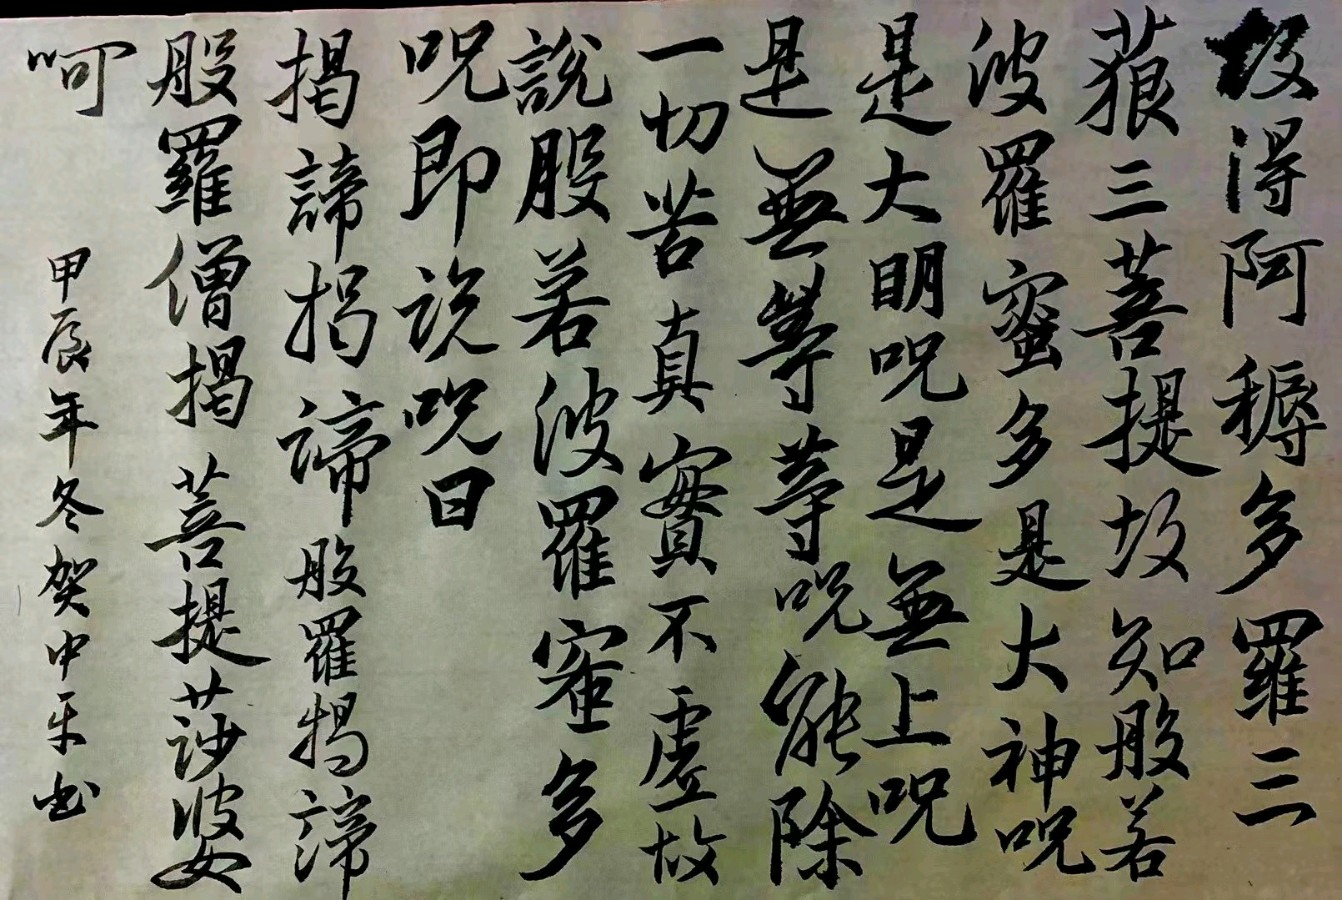 故得阿耨多羅三
藐三菩提故知般若
波羅蜜多是大神咒
是大明咒是無上咒
是無等等咒能除
一切苦真實不虛故
說般若波羅蜜多
咒即說咒曰
揭諦揭諦般羅揭諦
般羅僧揭菩提莎婆
呵
甲辰年冬賀中平书